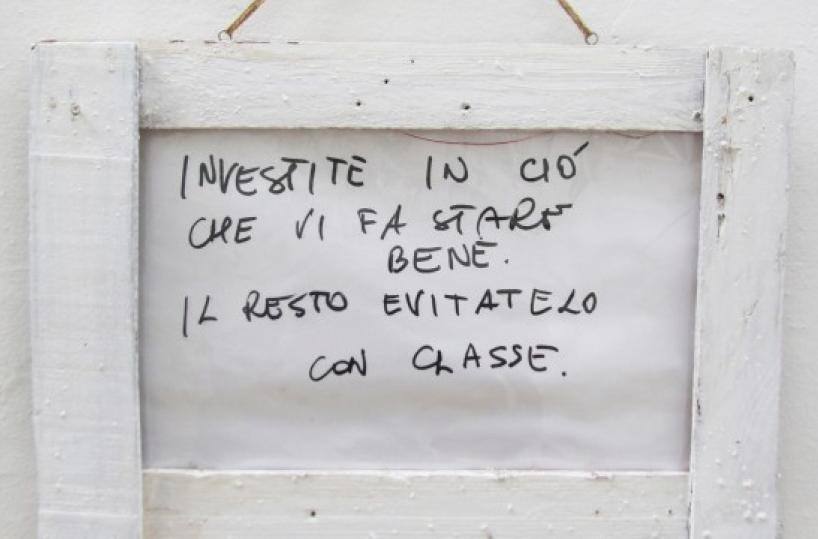 INVESTITE IN CIÓ
CHE VI FA STARE
BENE.
IL RESTO EVITATELO
CON CLASSE.